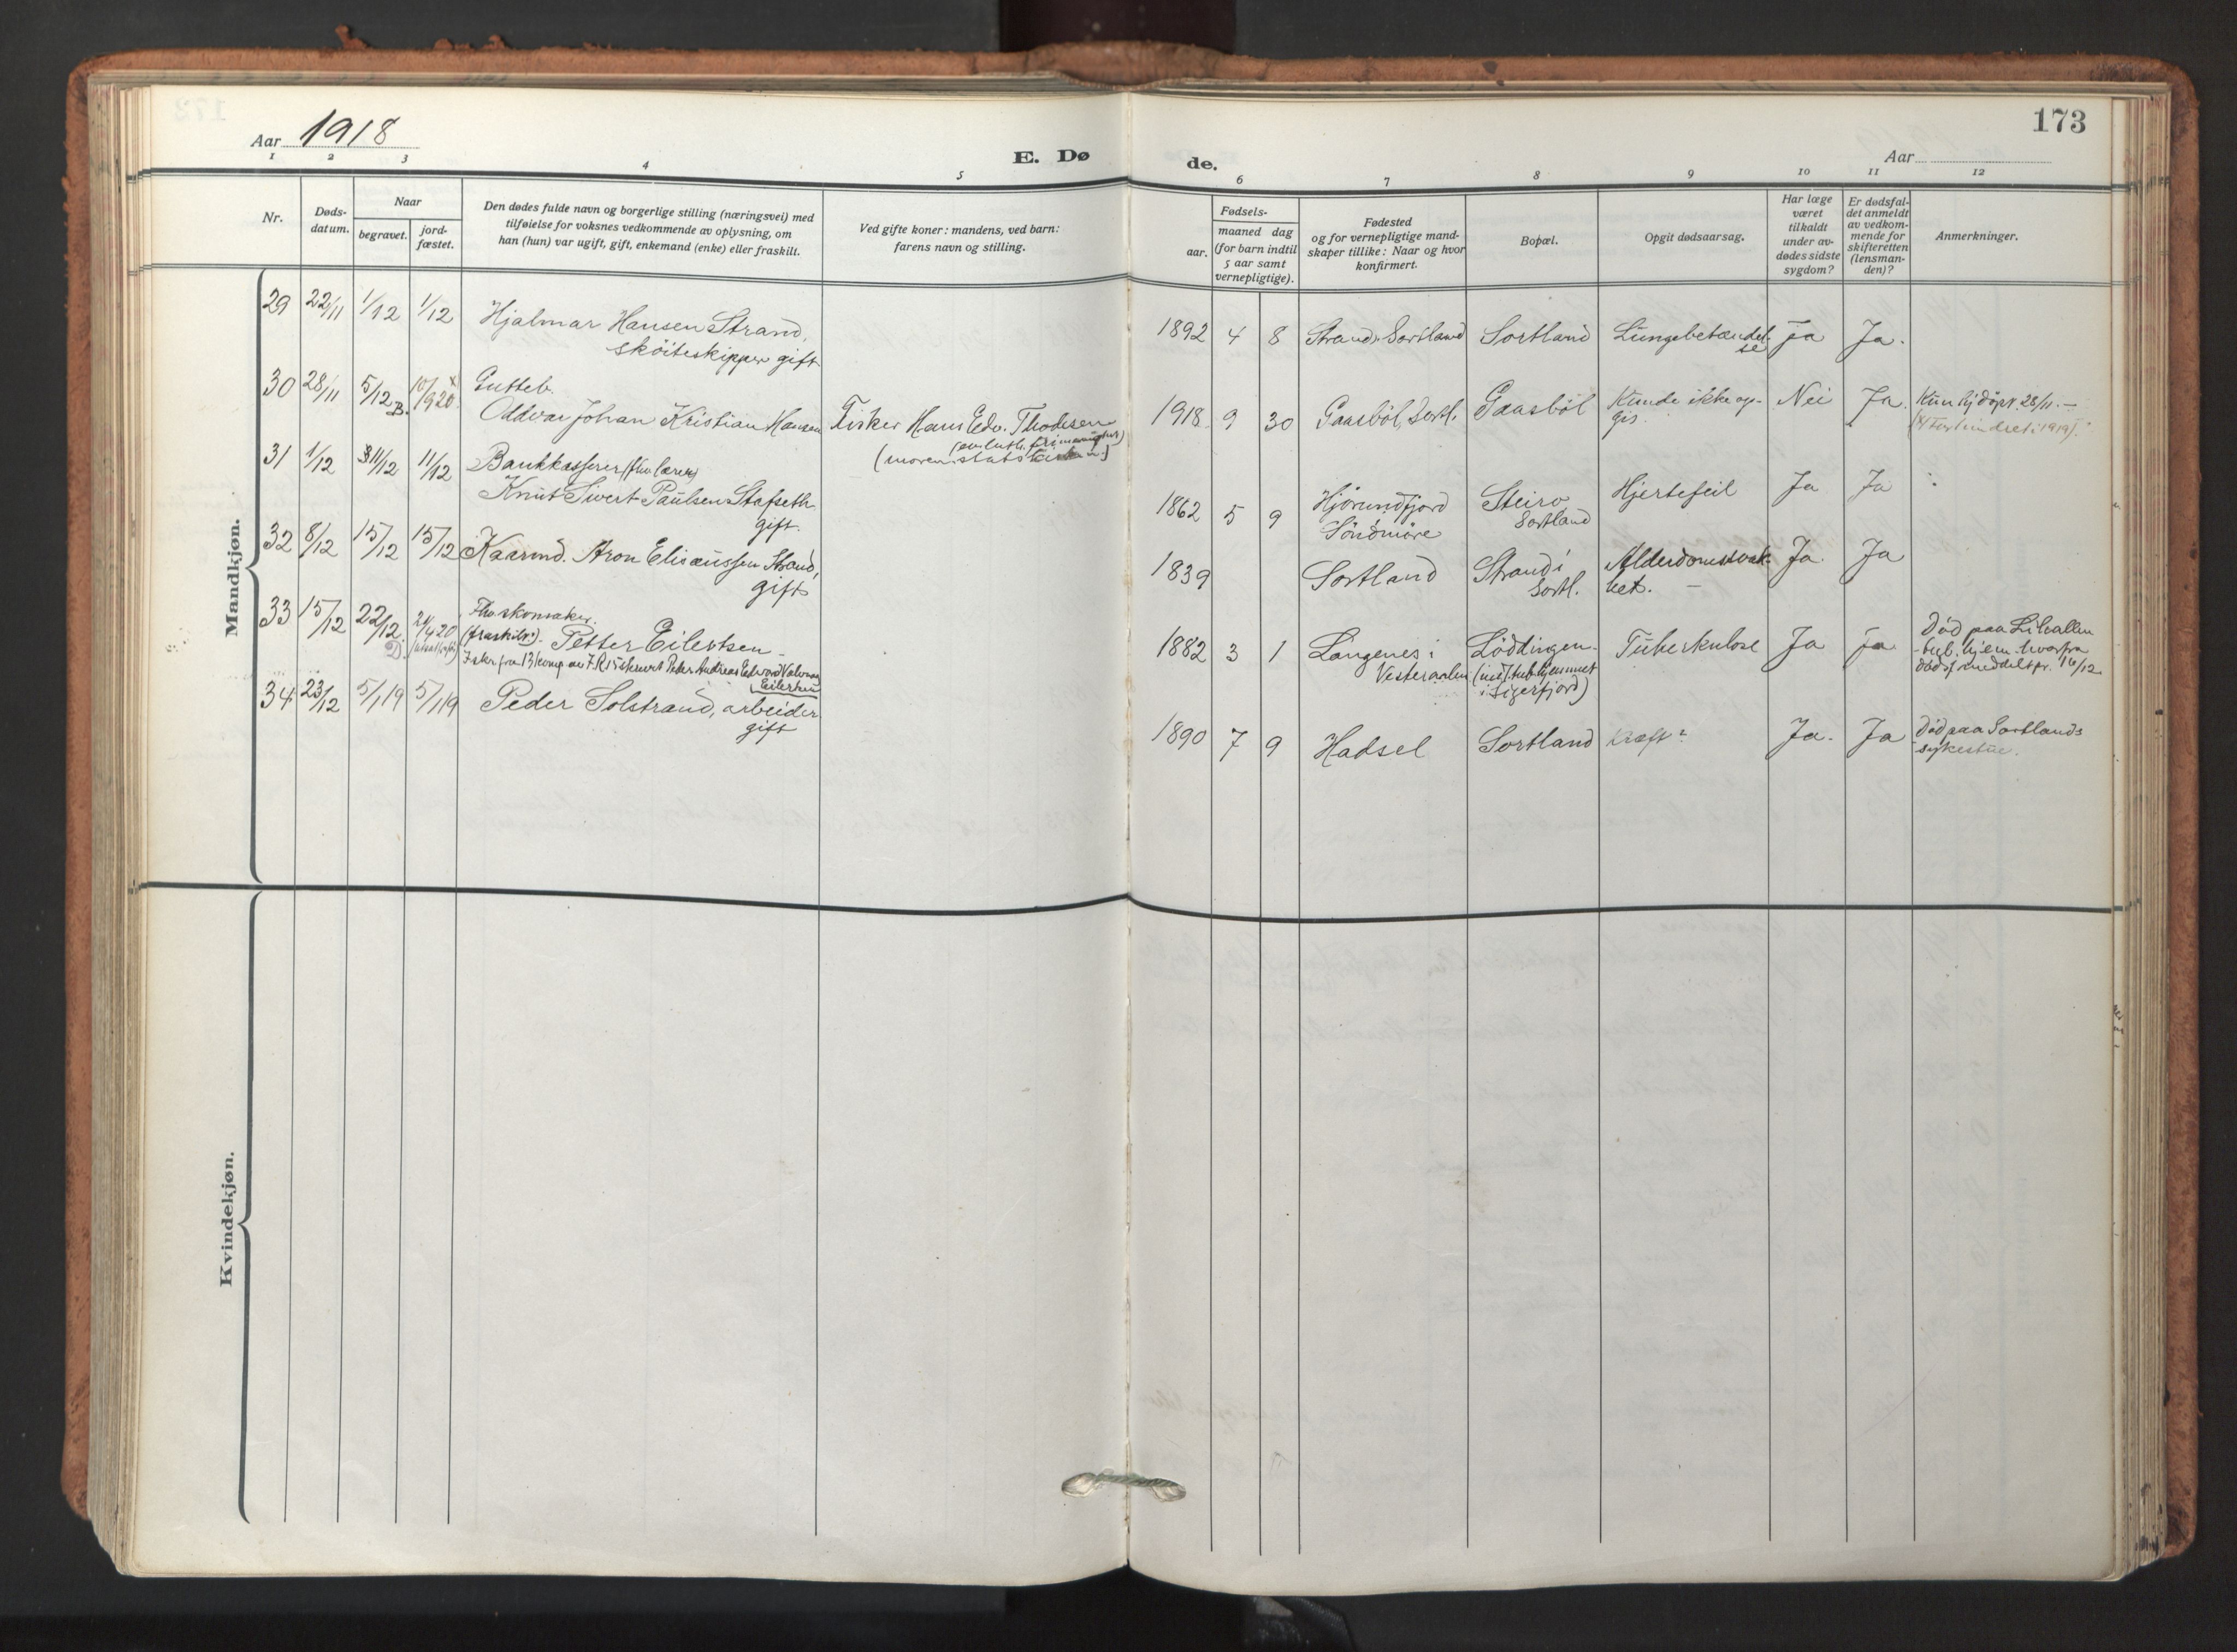 Aar 1918
E. Dø
de.
173
Aar
1 2 3 4 5 6 7 8 9 10 11 12
Nr.
Døds-
datum.
Naar
begravet.
jord-
fæstet.
Den dødes fulde navn og borgerlige stilling (næringsvei) med
tilføielse for voksnes vedkommende av oplysning, om
han (hun) var ugift, gift, enkemand (enke) eller fraskilt.
Ved gifte koner: mandens, ved barn:
farens navn og stilling.
Fødsels-
aar.
maaned dag
(for barn indtil
5 aar samt
vernepligtige).
Fødested
og for vernepligtige mand-
skaper tillike: Naar og hvor
konfirmert.
Bopæl.
Opgit dødsaarsag.
Har læge
været
tilkaldt
under av-
dødes sidste
sygdom?
Er dødsfal-
det anmeldt
av vedkom-
mende for
skifteretten
(lensman-
den)?
Anmerkninger.
Mandkjøn.
29 22/11 1/12 1/12 Hjalmar Hansen Strand,
sköiteskipper gift
1892 4 8 Strand, Sortland Sortland Lungebetændel-
se
ja Ja.
30 28/11 5/12 B. 10/920 x Gutteb.
Oddvar Johan Kristian Hansen
Fisker Hans Edv. Thodesen
(moren statskirken)
1918 9 30 Gaasböl, Sortl. Gaasböl Kunde ikke op-
gis.
Nei Ja. Kun hj döpt. 28/11. —
31 1/12 11/12 11/12 Bankkasserer (fhv. lærer)
Knut Sivert Paulsen Stafseth
gift.
1862 5 9 Hjörundfjord
Söndmöre
Steiro
Sortland
Hjertefeil Ja Ja
32 8/12 15/12 15/12 Kaarmd. Aron Elisæussen Strand,
gift
1839 Sortland Strand i
Sortl.
Alderdomssvak-
het. —
Ja Ja
33 15/12 22/12 D. Fhv. skomaker
(fraskilt). Petter Eilertsen
Eilertsen
1882 3 1 Langenes i
Vesteraalen
Löddingen.
(ind. tub.hjemmet
i Sigerfjord)
Tuberkulose Ja ja Död paa Lilvallen
tub. hjem hvorfra
dödsf. meddelt pr. 16/12
34 23/12 5/1 19 5/1 19 Peder Solstrand, arbeider
gift
1890 7 9 Hadsel Sortland Kræft? Ja. Ja Död paa Sortlands
sykestue.
Kvindekjøn.